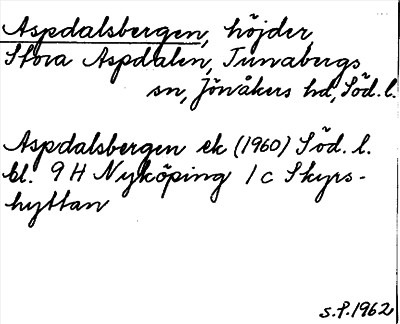 Aspdalsbergen, höjder,
Stora Aspdalen, Tunabergs
sn, Jönåkers hd, Söd. l.
Aspdalsbergen ek (1960) Söd. l.
bl. 9 H Nyköping 1 c Skyrs-
hyttan
S.P. 1962